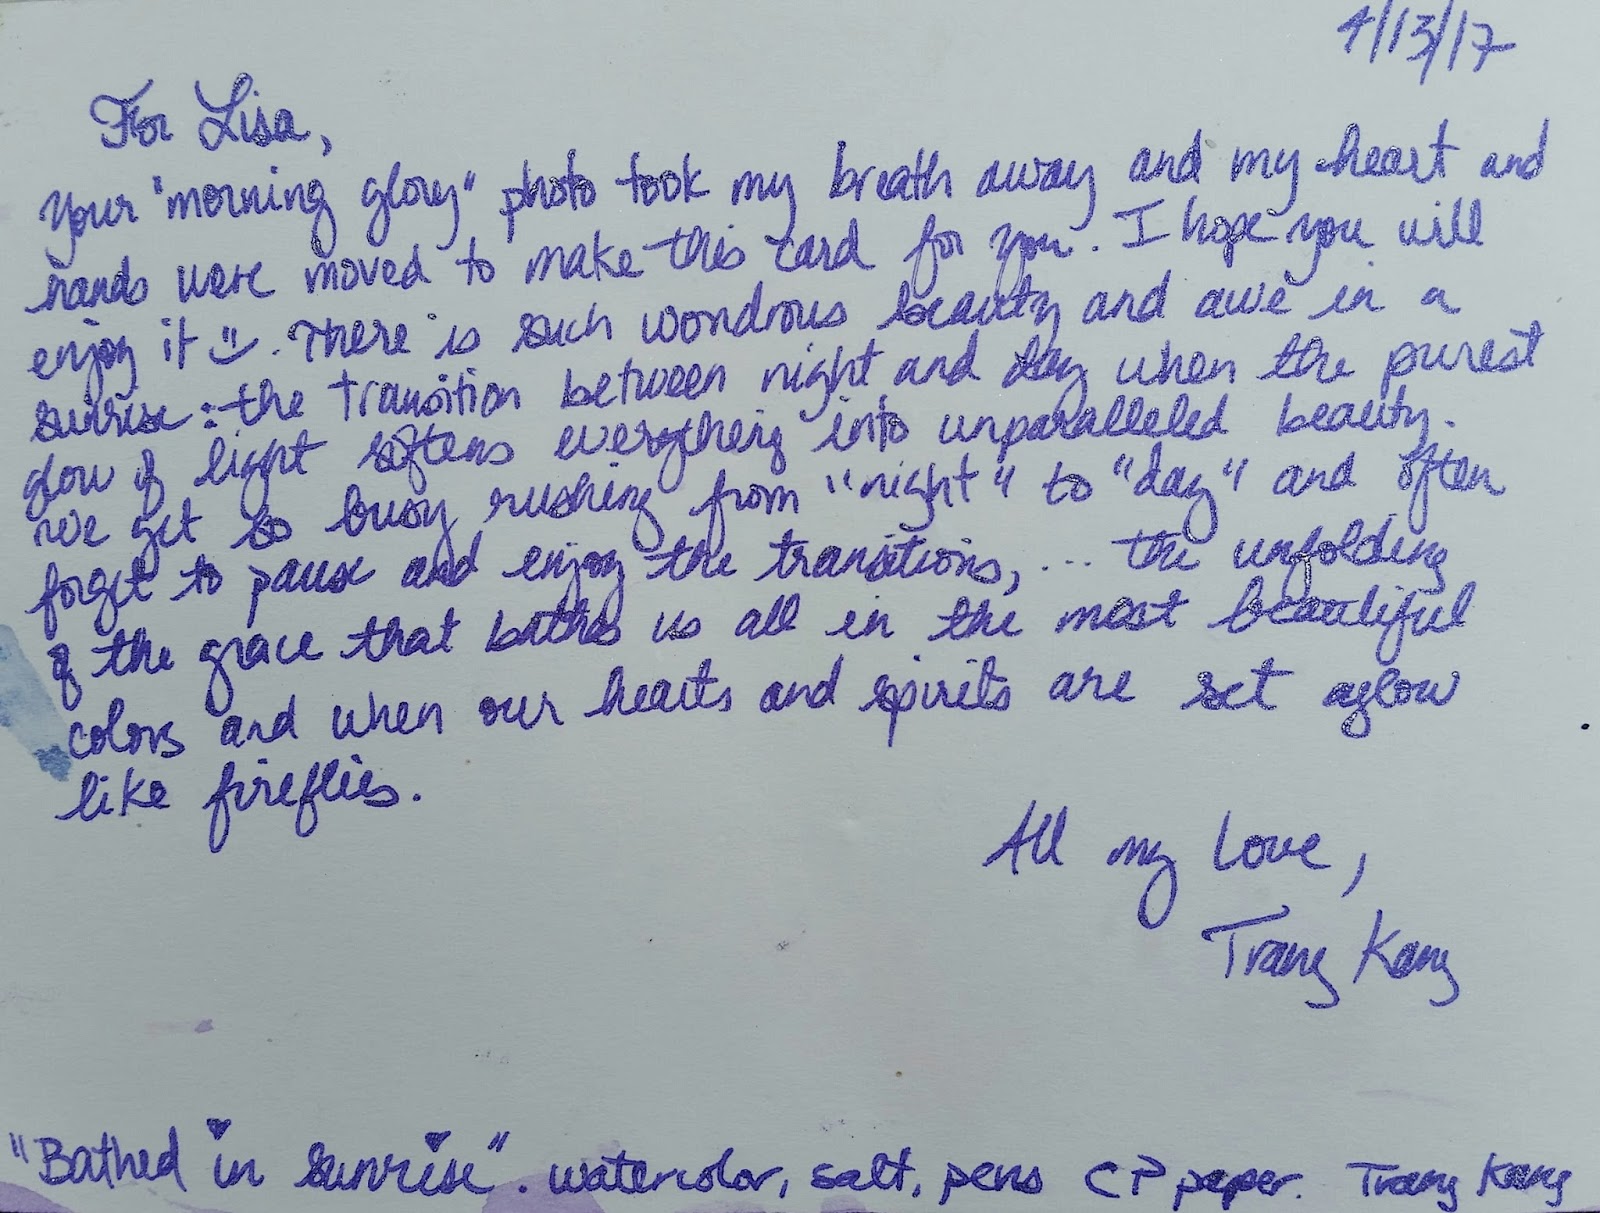 4/13/17
For Lisa,
Your "morning glory" photo took my breath away and my heart and
hands were moved to make this card for you. I hope you will
enjoy it :). There is such wondrous beauty and awe in a
sunrise: the transition between night and day when the purest
glow of light softens everything into unparalleled beauty.
We get so busy rushing from "night" to "day" and often
forget to pause and enjoy the transitions, ... the unfolding
of the grace that bathes us all in the most beautiful
colors and when our hearts and spirits are set aglow
like fireflies.
All my love,
Trang Kang
"Bathed in Sunrise". watercolor, salt, pens CP paper. Trang Kang